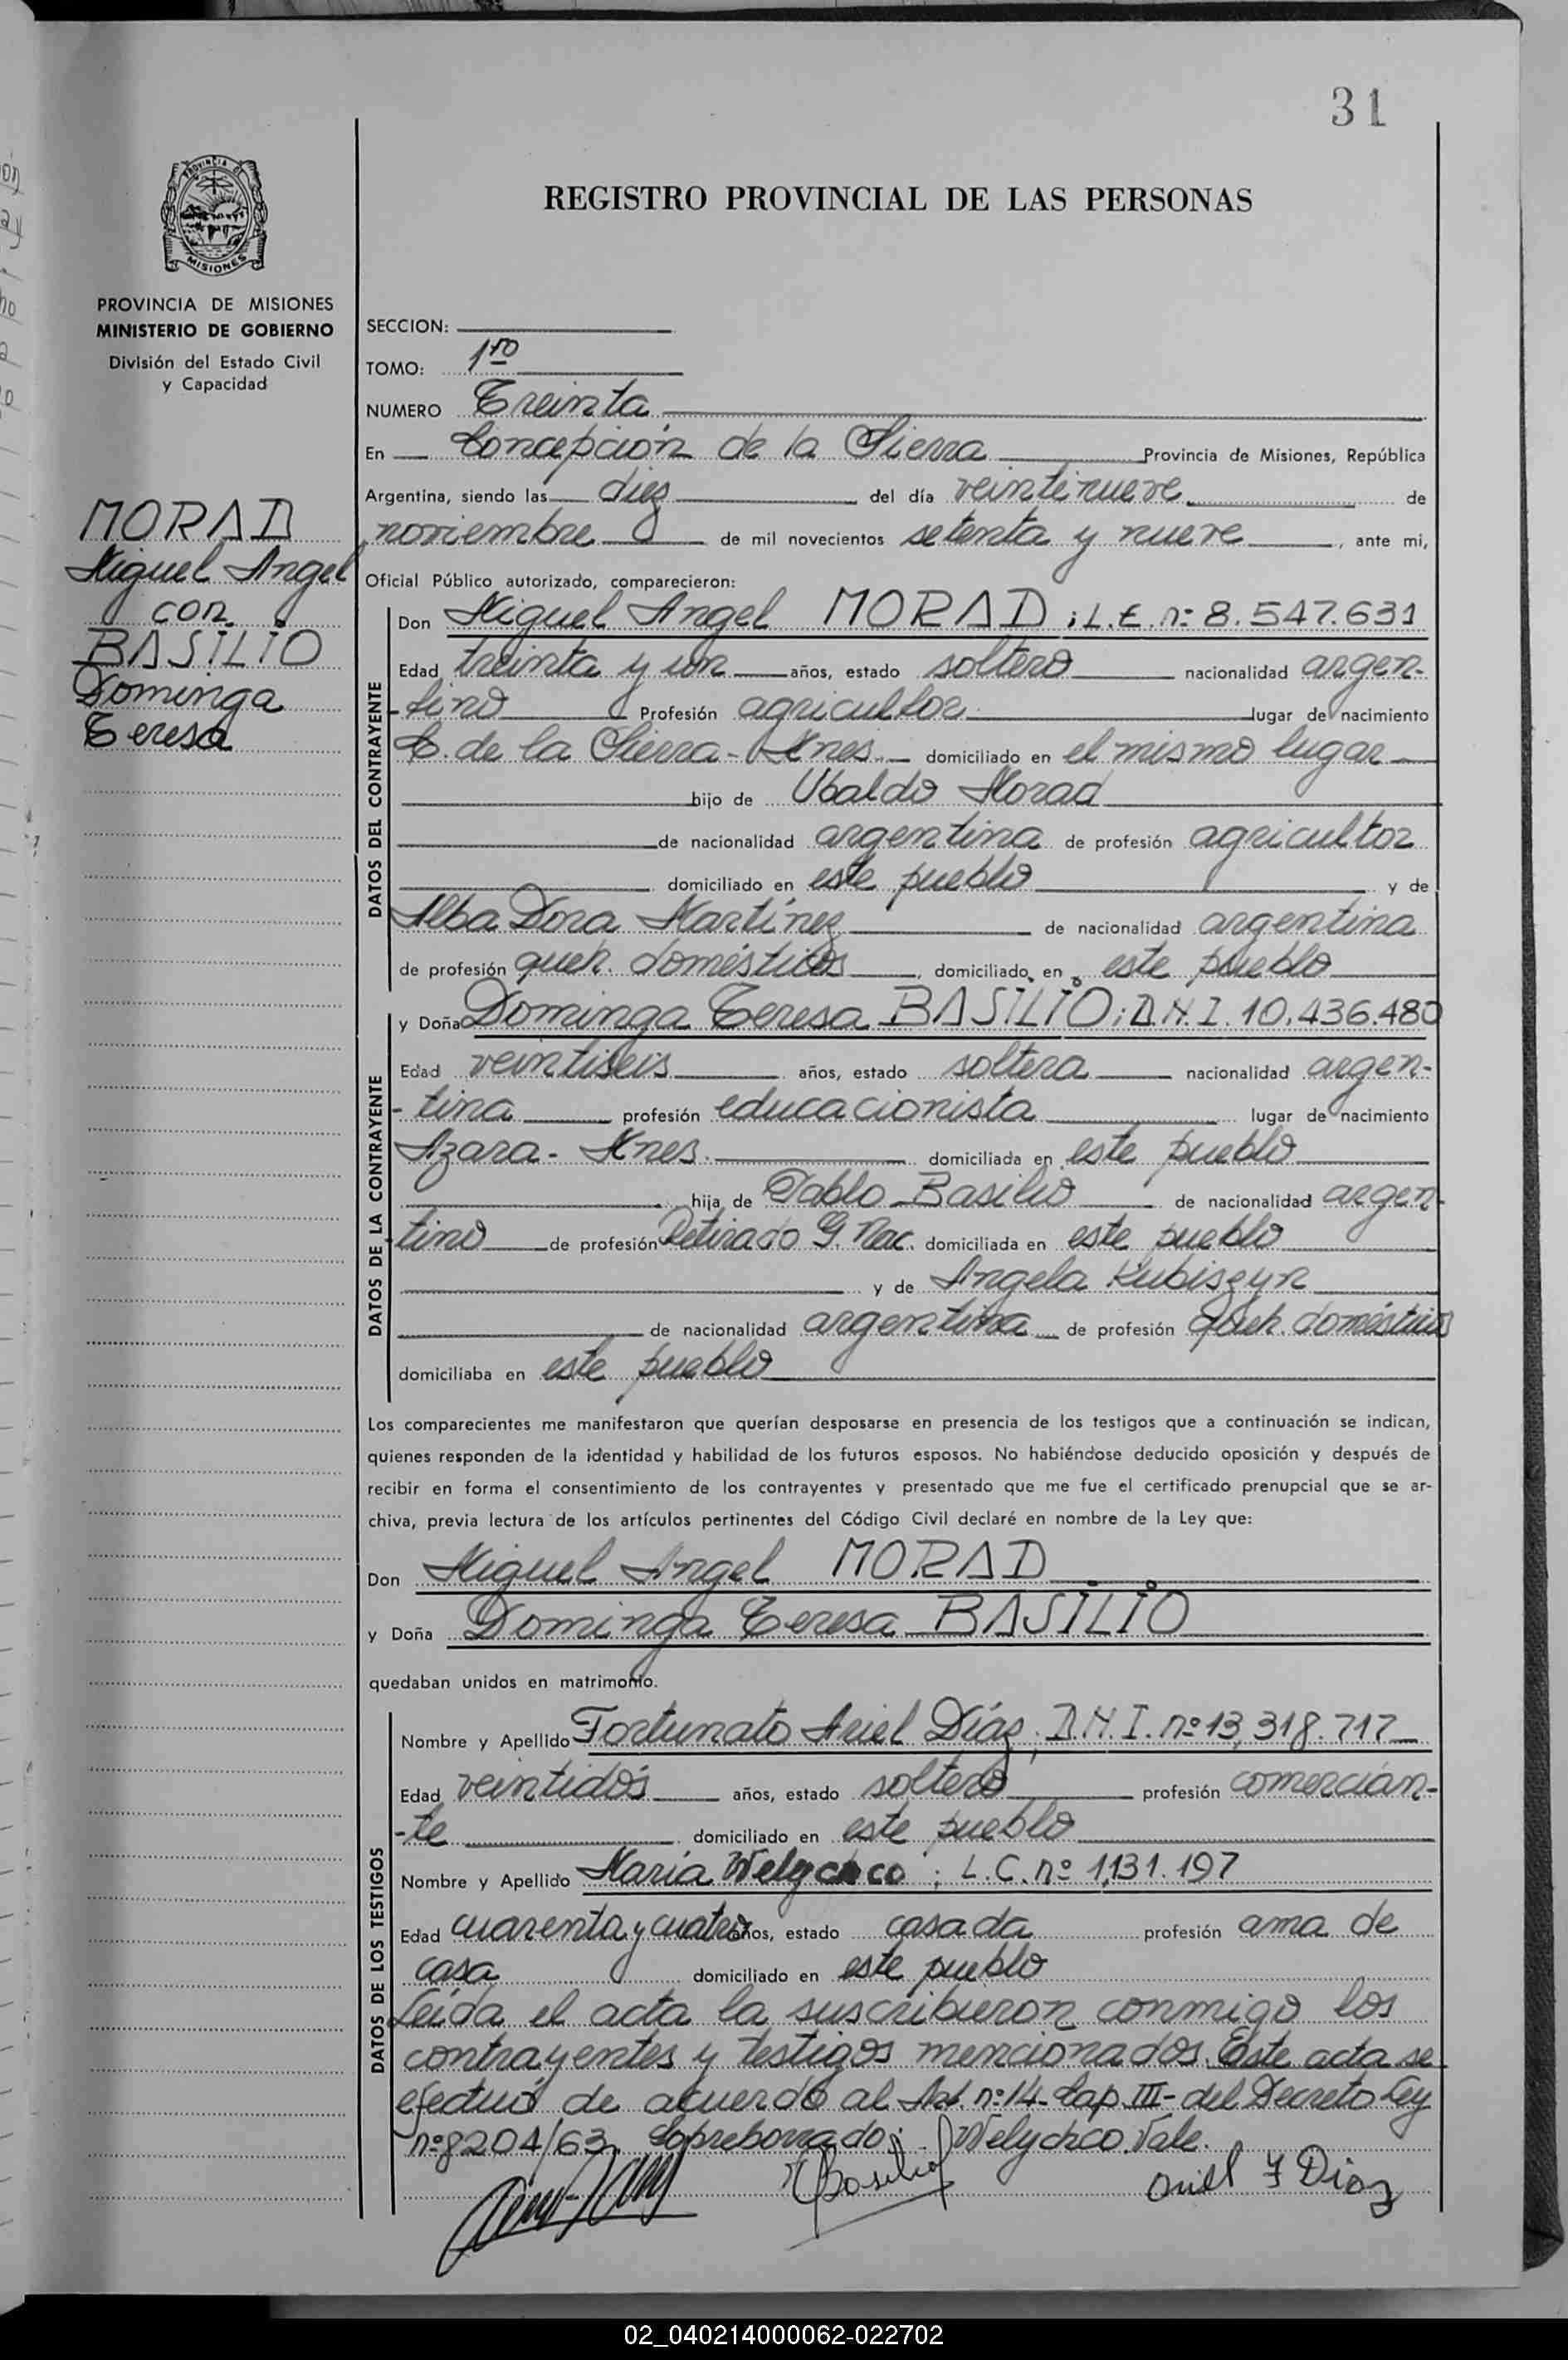 31
PROVINCIA DE
MISIONES
PROVINCIA DE MISIONES
MINISTERIO DE GOBIERNO
División del Estado Civil
y Capacidad
MORAD
Miguel Angel
con
BASILIO
Dominga
Teresa
REGISTRO PROVINCIAL DE LAS PERSONAS
SECCION:
TOMO: 1ro
NUMERO Treinta
En Concepción de la Sierra Provincia de Misiones, República
Argentina, siendo las diez del día veintinueve de
noviembre de mil novecientos setenta y nueve, ante mi,
Oficial Público autorizado, comparecieron:
DATOS DEL CONTRAYENTE
Don Miguel Angel MORAD; L.E. nº 8.547.631
Edad treinta y un años, estado soltero nacionalidad argen-
-tino Profesión agricultor lugar de nacimiento
C. de la Sierra - Mnes. domiciliado en el mismo lugar
hijo de Ubaldo Morad
de nacionalidad argentina de profesión agricultor
domiciliado en este pueblo y de
Alba Dora Martínez de nacionalidad argentina
de profesión queh. domésticos, domiciliado en este pueblo
DATOS DE LA CONTRAYENTE
y Doña Dominga Teresa BASILIO; D.N.I. 10.436.480
Edad veintiseis años, estado soltera nacionalidad argen-
-tina profesión educacionista lugar de nacimiento
Azara - Mnes. domiciliada en este pueblo
hija de Pablo Basilio de nacionalidad argen-
tino de profesión Retirado G. Nac. domiciliada en este pueblo
y de Angela Kubiszyn
de nacionalidad argentina de profesión queh. domésticos
domiciliaba en este pueblo
Los comparecientes me manifestaron que querían desposarse en presencia de los testigos que a continuación se indican,
quienes responden de la identidad y habilidad de los futuros esposos. No habiéndose deducido oposición y después de
recibir en forma el consentimiento de los contrayentes y presentado que me fue el certificado prenupcial que se ar-
chiva, previa lectura de los artículos pertinentes del Código Civil declaré en nombre de la Ley que:
Don Miguel Angel MORAD
y Doña Dominga Teresa BASILIO
quedaban unidos en matrimonio.
DATOS DE LOS TESTIGOS
Nombre y Apellido Fortunato Ariel Díaz; D.N.I. nº 13,318.717
Edad veintidós años, estado soltero profesión comercian-
-te domiciliado en este pueblo
Nombre y Apellido María Welychco; L.C. nº 1,131.197
Edad cuarenta y cuatro años, estado casada profesión ama de
casa domiciliado en este pueblo
Leída el acta la suscribieron conmigo los
contrayentes y testigos mencionados. Este acta se
efectuó de acuerdo al Art. nº 14 - Cap. III - del Decreto Ley
nº 8204/63. Sopreborrado: Welychco Vale.
Basilio
Ariel F Diaz
02_040214000062-022702